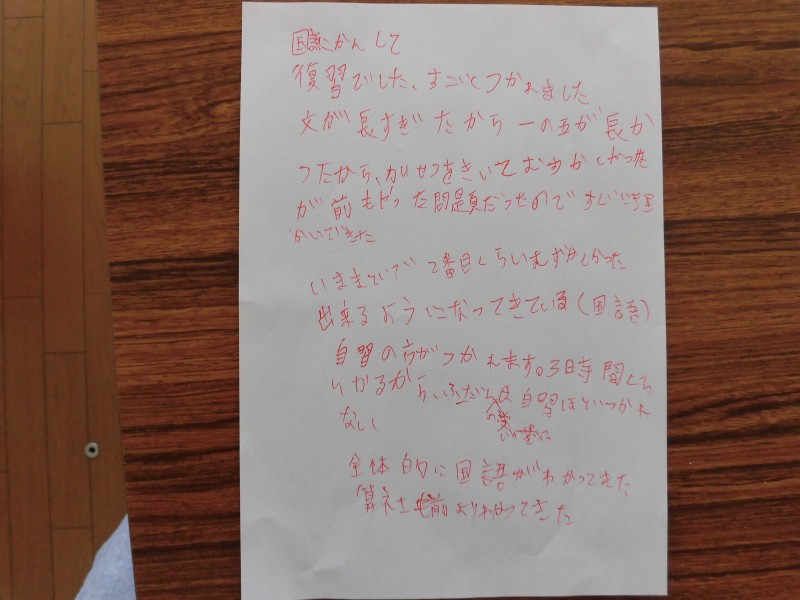 国語にかんして
復習でした、すごくつかれました
文が長すぎたから 一の五が長か
ったから、かせつをきいてむずかしかった
が前もやった問題だったのですぐに理
かいできた
いままでで2番目くらいむずかしかった
出来るようになってきている(国語)
自習の方がつかれます。3時間くら
いかるから、ふだんは自習ほどつかれ
ない
の業
全体的に国語がわかってきた
算社も前よりわかってきた